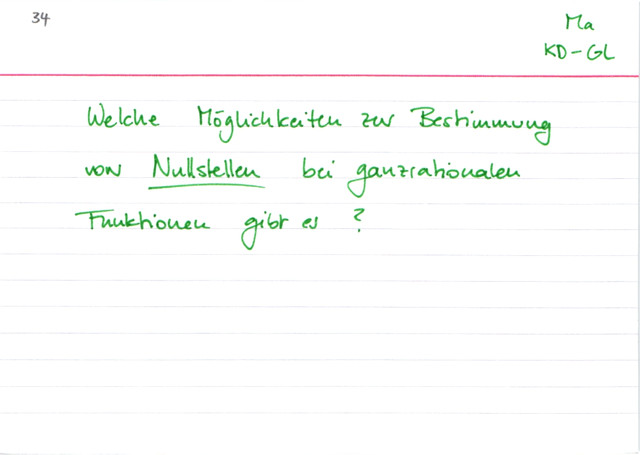 34
Ma
KD-GL
Welche Möglichkeiten zur Bestimmung
von Nullstellen bei ganzrationalen
Funktionen gibt es?